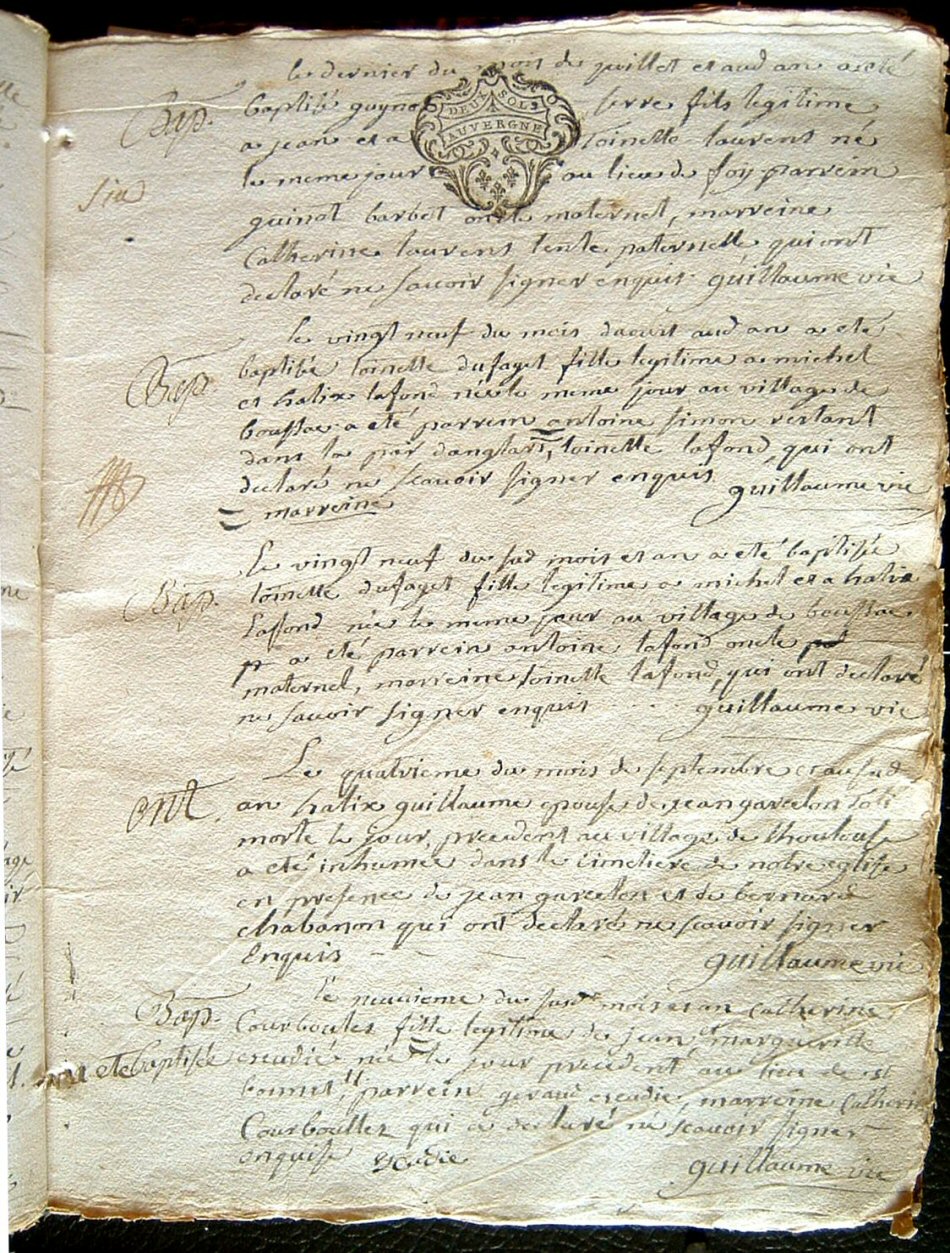 le dernier du mois de juillet et aud an a eté
Bap. baptisé guynot serre fils legitime
DEUX SOLS
AUVERGNE
a jean et a toinette laurent né
le meme jour au lieu de foy parrein
guinot barbet oncle maternel, marreine
Catherine laurens tente paternelle qui ont
declaré ne savoir signer enquis guillaume vic
le vingt neuf du mois daoust aud an a eté
Bap. baptisée toinette dufayet fille legitime a michel
et halix lafond née le meme jour au village de
boussac a été parrein antoine simon restant
dans la par danglars, toinette lafond, qui ont
declaré ne scavoir signer enquis
guillaume vic
= marreine
Le vingt neuf du sud mois et an a eté baptisée
Bap. toinette dufayet fille legitime a michel et a halix
Lafond née le meme jour au village de boussac
a eté parrein antoine lafond oncle
maternel, marreine toinette lafond, qui ont declaré
ne savoir signer enquis guillaume vic
Le quatrieme du mois de septembre et au sud
ent. an halix guillaume epouse de jean garcelon
morte le jour precedent au village de
a eté inhumée dans le cimetiere de notre eglise
en presence de jean garcelon et de bernard
chabanon qui ont declaré ne scavoir signer
Enquis guillaume vic
le neuvieme du sud mois et an Catherine
Bap. Courboules fille legitime de jean margueritte
eté baptisée escudié née le jour precedent au lieu de st
bonnet, parrein geraud escudie, marreine Catherine
Courboulles qui a declaré ne scavoir signer
enquise escudie guillaume vic